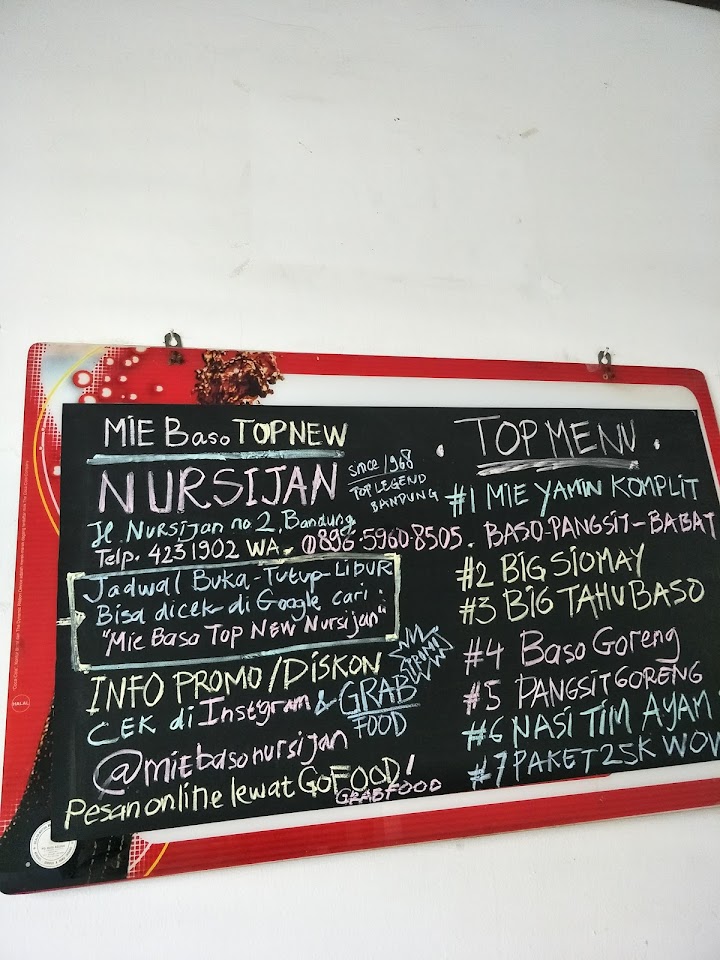 MIE Baso TOPNEW
NURSIJAN
since 1968
TOP LEGEND
BANDUNG
Jl. Nursijan no 2, Bandung
Telp. 4231902 WA. 0896-5960-8505.
Jadwal Buka-Tutup-LIBUR
Bisa dicek di Google cari:
"Mie Baso Top NEW Nursijan"
INFO PROMO/DISKON
CEK di Instgram & GRAB
FOOD
@miebasonursijan
Pesan online lewat GoFOOD!
GRABFOOD
TOP MENU.
#1 MIE YAMIN KOMPLIT
BASO-PANGSIT-BABAT
#2 BIG SIOMAY
#3 BIG TAHU BASO
#4 Baso Goreng
#5 PANGSIT GORENG
#6 NASI TIM AYAM
#7 PAKET 25K WOW
HALAL